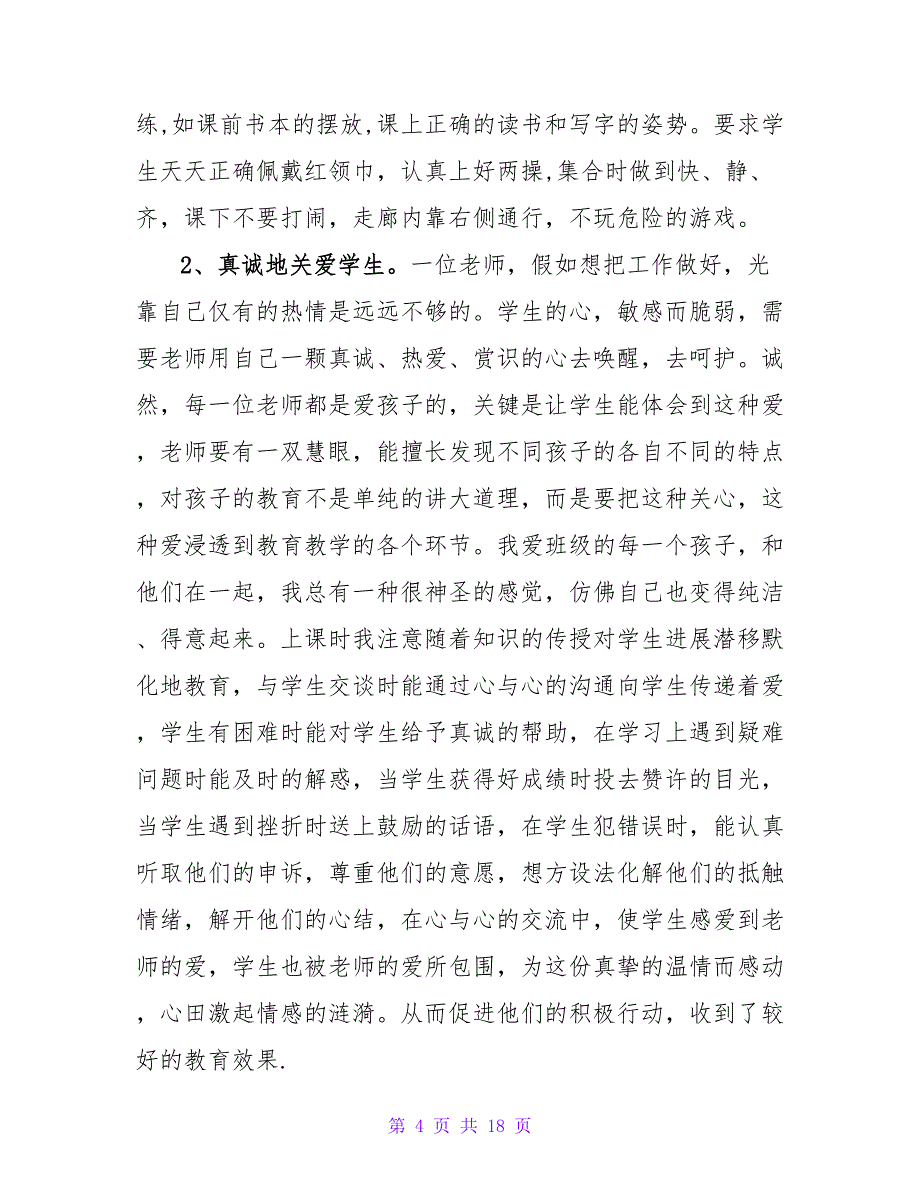 练,如课前书本的摆放,课上正确的读书和写字的姿势。要求学
生天天正确佩戴红领巾，认真上好两操,集合时做到快、静、
齐，课下不要打闹，走廊内靠右侧通行，不玩危险的游戏。
2、真诚地关爱学生。一位老师，假如想把工作做好，光
靠自己仅有的热情是远远不够的。学生的心，敏感而脆弱，需
要老师用自己一颗真诚、热爱、赏识的心去唤醒，去呵护。诚
然，每一位老师都是爱孩子的，关键是让学生能体会到这种爱
，老师要有一双慧眼，能擅长发现不同孩子的各自不同的特点
，对孩子的教育不是单纯的讲大道理，而是要把这种关心，这
种爱浸透到教育教学的各个环节。我爱班级的每一个孩子，和
他们在一起，我总有一种很神圣的感觉，仿佛自己也变得纯洁
、得意起来。上课时我注意随着知识的传授对学生进展潜移默
化地教育，与学生交谈时能通过心与心的沟通向学生传递着爱
，学生有困难时能对学生给予真诚的帮助，在学习上遇到疑难
问题时能及时的解惑，当学生获得好成绩时投去赞许的目光，
当学生遇到挫折时送上鼓励的话语，在学生犯错误时，能认真
听取他们的申诉，尊重他们的意愿，想方设法化解他们的抵触
情绪，解开他们的心结，在心与心的交流中，使学生感爱到老
师的爱，学生也被老师的爱所包围，为这份真挚的温情而感动
，心田激起情感的涟漪。从而促进他们的积极行动，收到了较
好的教育效果.
第 4 页 共 18 页